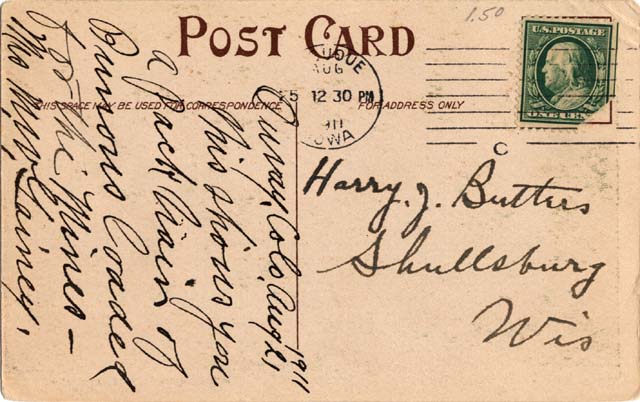 1.50
POST CARD
U.S. POSTAGE
AUG
5 12 30 PM
1911
IOWA
THIS SPACE MAY BE USED FOR CORRESPONDENCE
FOR ADDRESS ONLY
Ouray, Colo, Aug 21, 1911
This shows you
a pack train of
Burros loaded
for the Mines —
Harry. J. Butters
Shullsburg
Wis